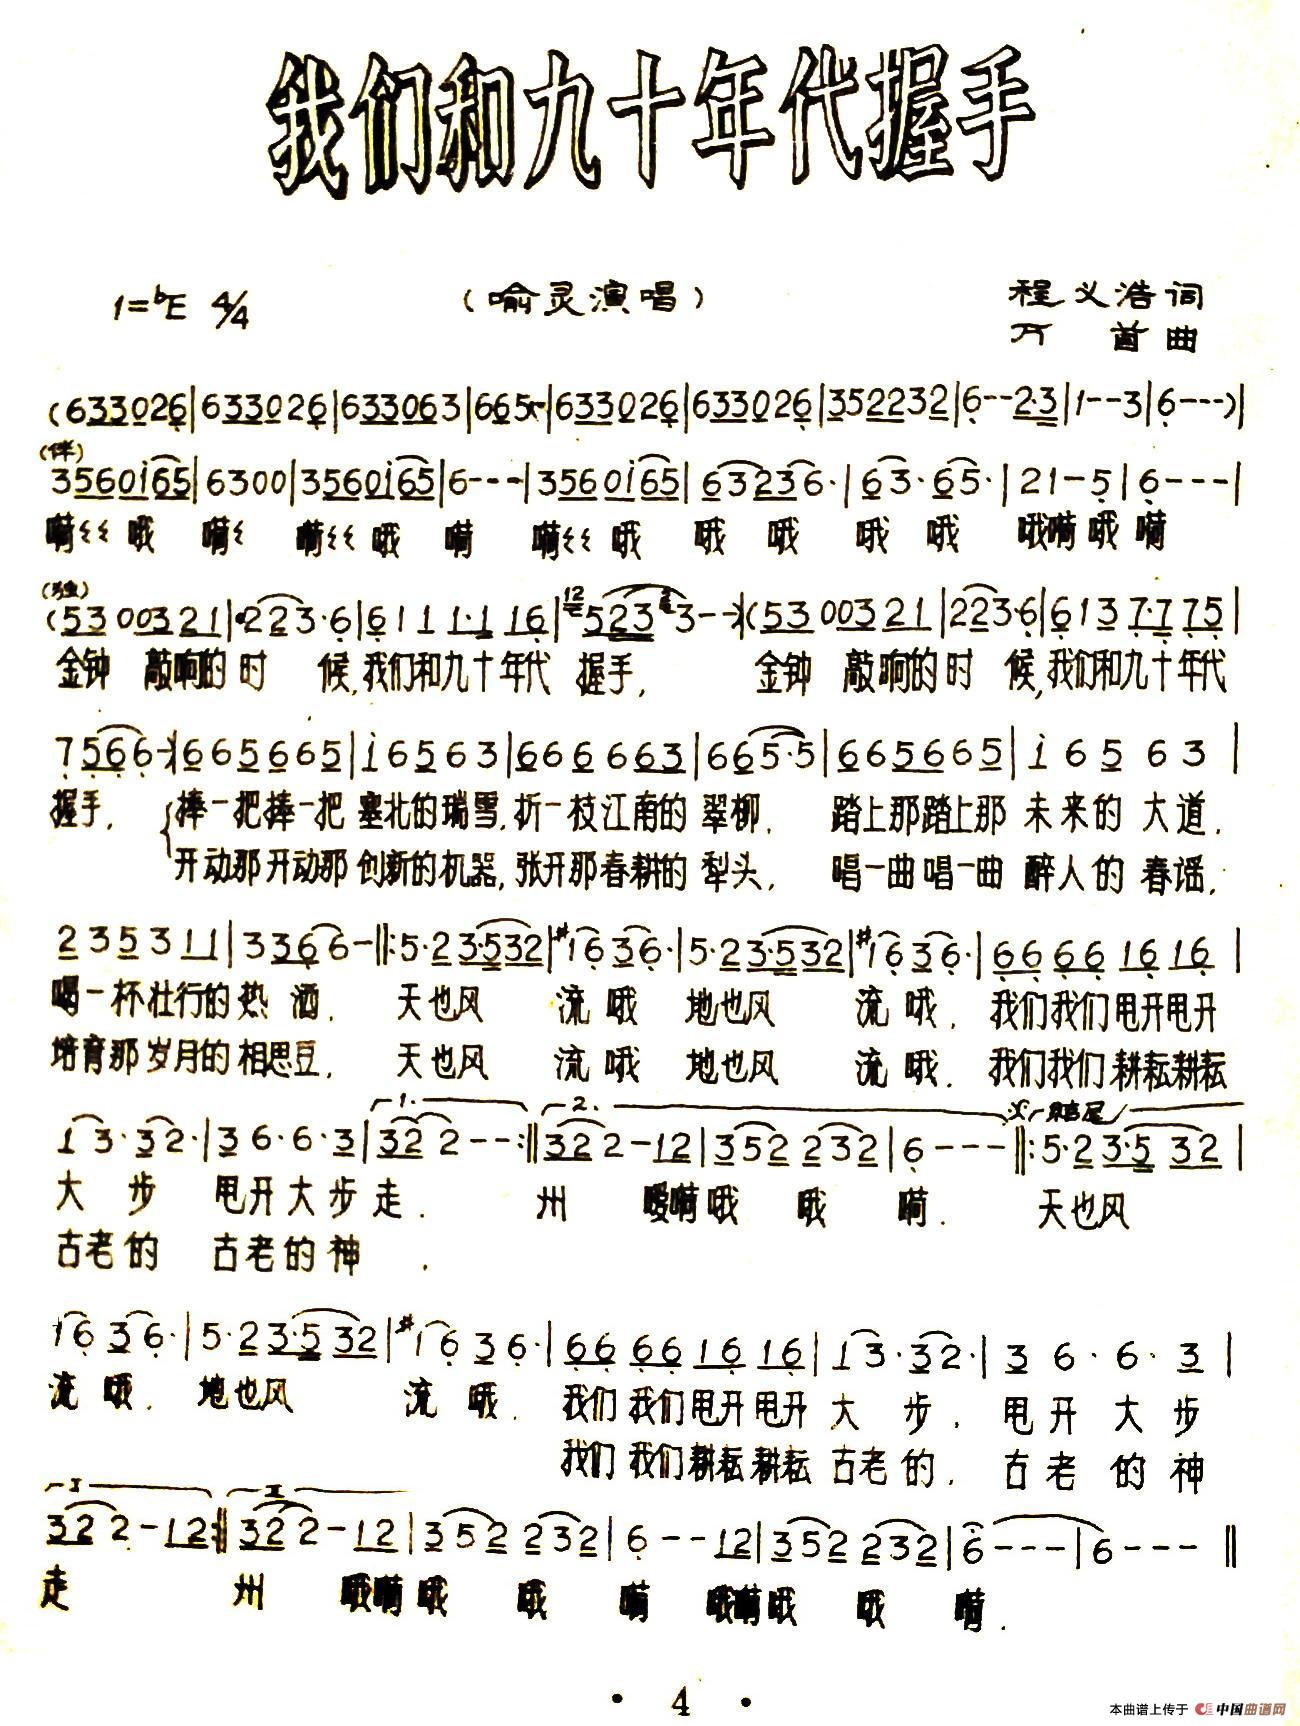 我们和九十年代握手
1=♭E 4/4 (喻灵演唱) 程义浩词
万首曲
(633026|633026|633063|665-|633026|633026|352232|6--2·3|1--3|6---)|
(伴)
3560i65|6300|3560i65|6---|3560i65|63236·|63·65·|21-5|6---|
嗬〻〻哦 嗬〻 嗬〻〻哦 嗬 嗬〻〻哦 哦 哦 哦 哦 哦嗬哦嗬
(独)
(5300321|223·6|6111·116|5233--)|(5300321|223·6|6137·775|
金钟 敲响的时 候,我们和九十年代 握手, 金钟 敲响的时 候,我们和九十年代
7566-|665665|i6563|666663|6655·5|665665|i6563|
握手, 捧一把捧一把 塞北的瑞雪,折一枝江南的 翠柳, 踏上那踏上那 未来的大道,
开动那开动那 创新的机器,张开那春耕的 犁头, 唱一曲唱一曲 醉人的春谣,
235311|3366-‖:5·23·532|#1636·|5·23·532|#1636·|66661616|
喝一杯壮行的热 酒, 天也风 流哦 地也风 流哦, 我们我们甩开甩开
培育那岁月的相思豆, 天也风 流哦 地也风 流哦, 我们我们耕耘耕耘
1.  2.  结尾
13·32·|36·6·3|322--:‖322-12|352232|6---‖:5·23·532|
大步 甩开大步走, 州 嗳嗬哦 哦 嗬. 天也风
古老的 古老的神 ,
1636·|5·23·532|#1636·|66661616|13·32·|36·6·3|
流哦, 地也风 流哦, 我们我们甩开甩开大步, 甩开大步
我们我们耕耘耕耘古老的, 古老的神
I  II
322-12:‖322-12|352232|6--12|352232|6---|6---‖
走 州 哦嗬哦 哦 嗬 哦嗬哦 哦 嗬.
· 4 ·
本曲谱上传于 中国曲谱网